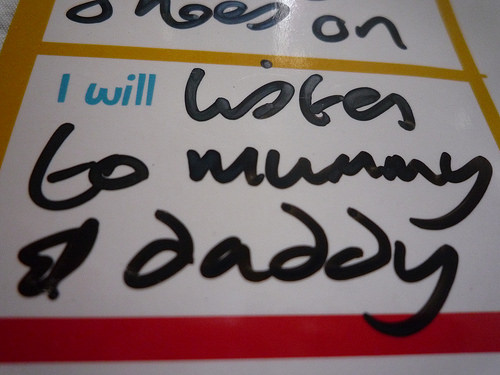 shoes on
I will listen
to mummy
& daddy